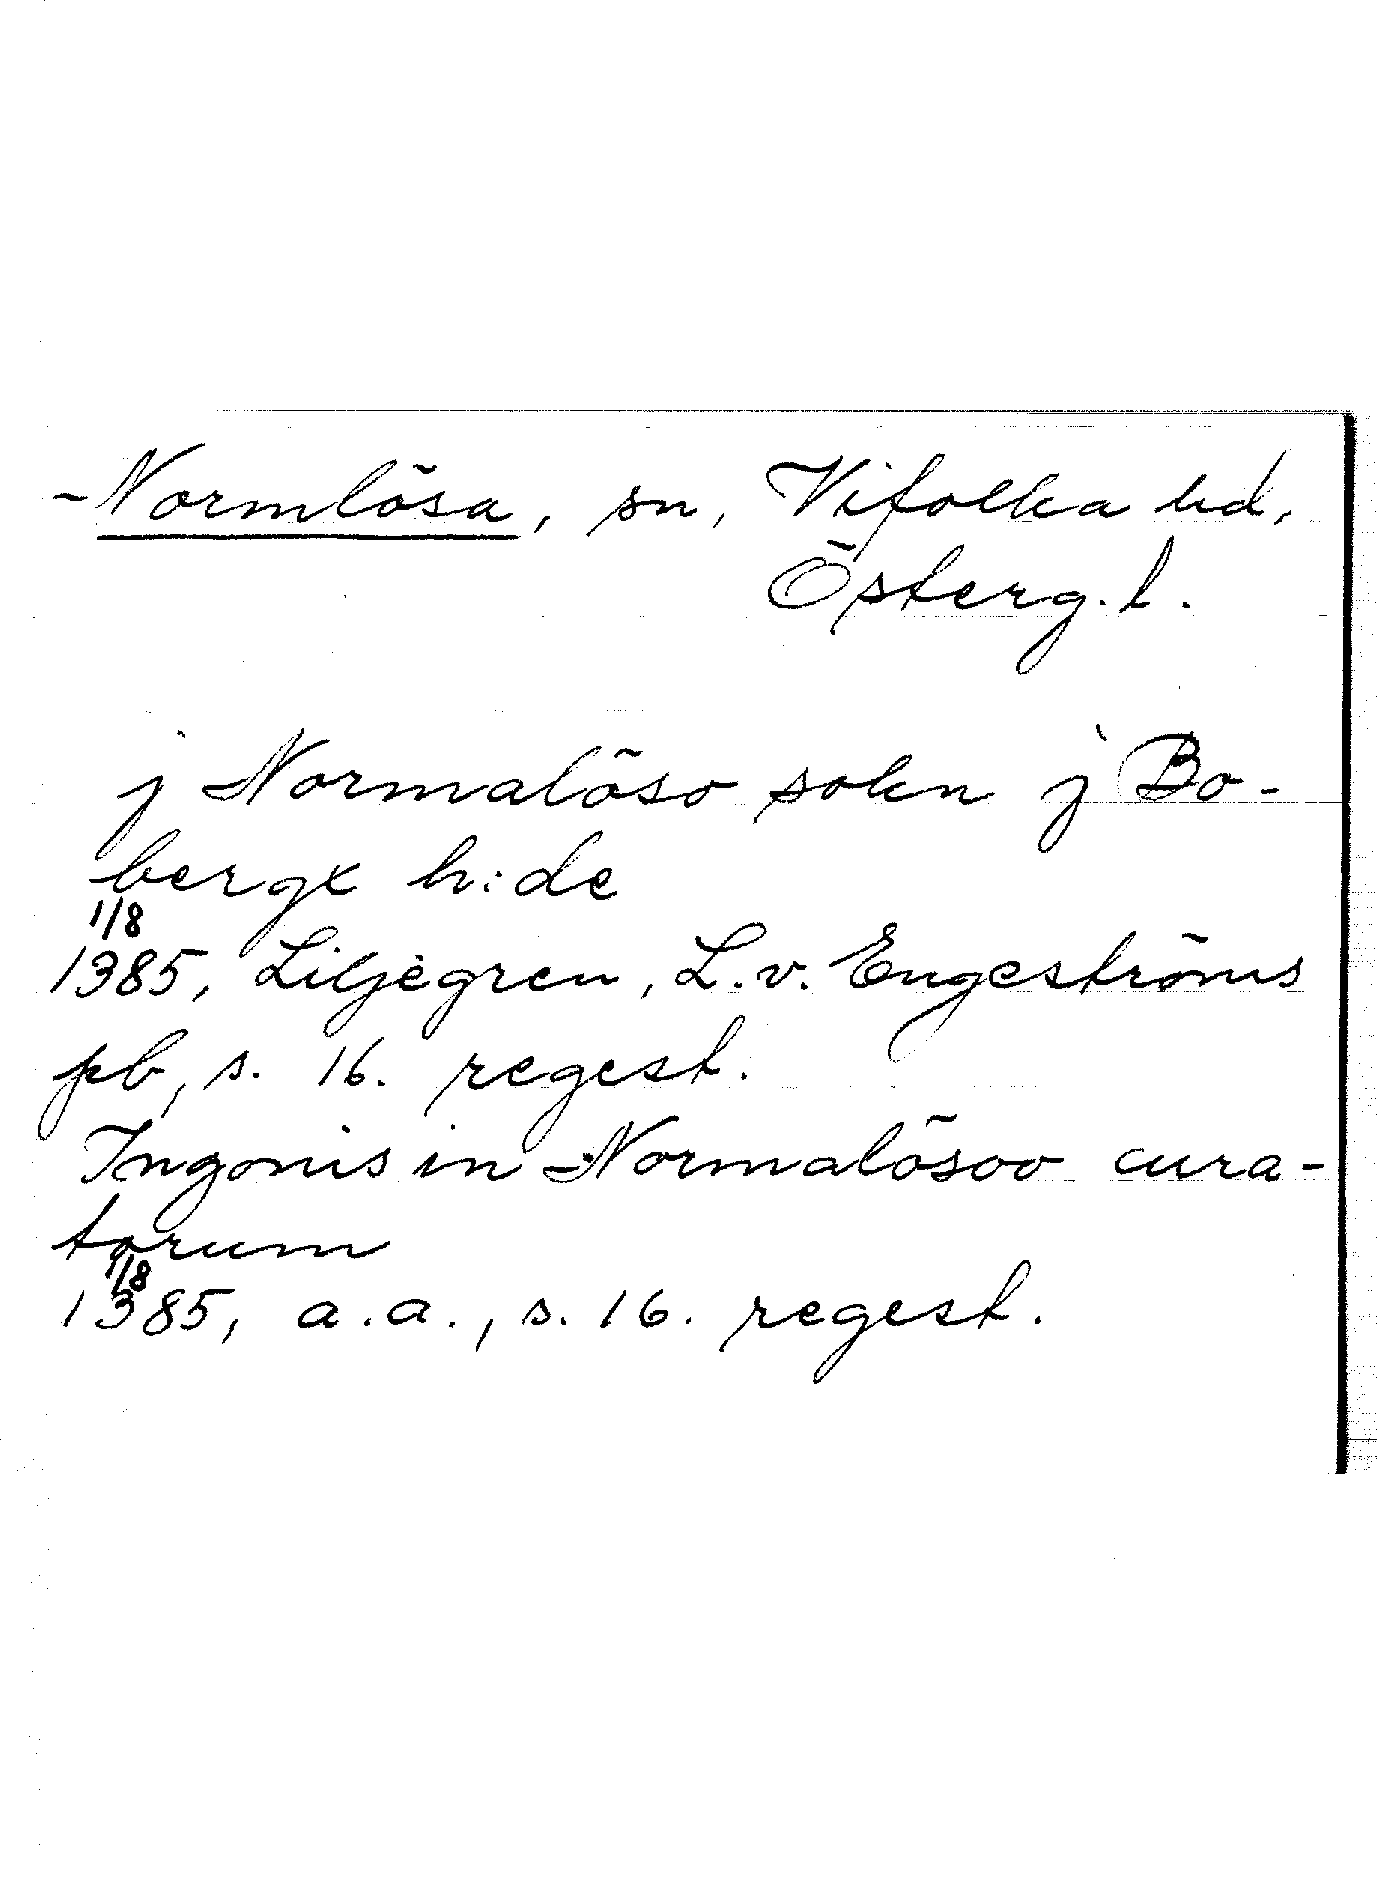 Normlösa, sn, Vifolka hd,
Österg.l.
j Normalöso sokn j Bo-
bergx h:de
1/8
1385, Liljegren, L.v. Engeströms
pb, s. 16. regest.
Ingonis in Normalösoo cura-
torum
1/8
1385, a.a., s. 16. regest.